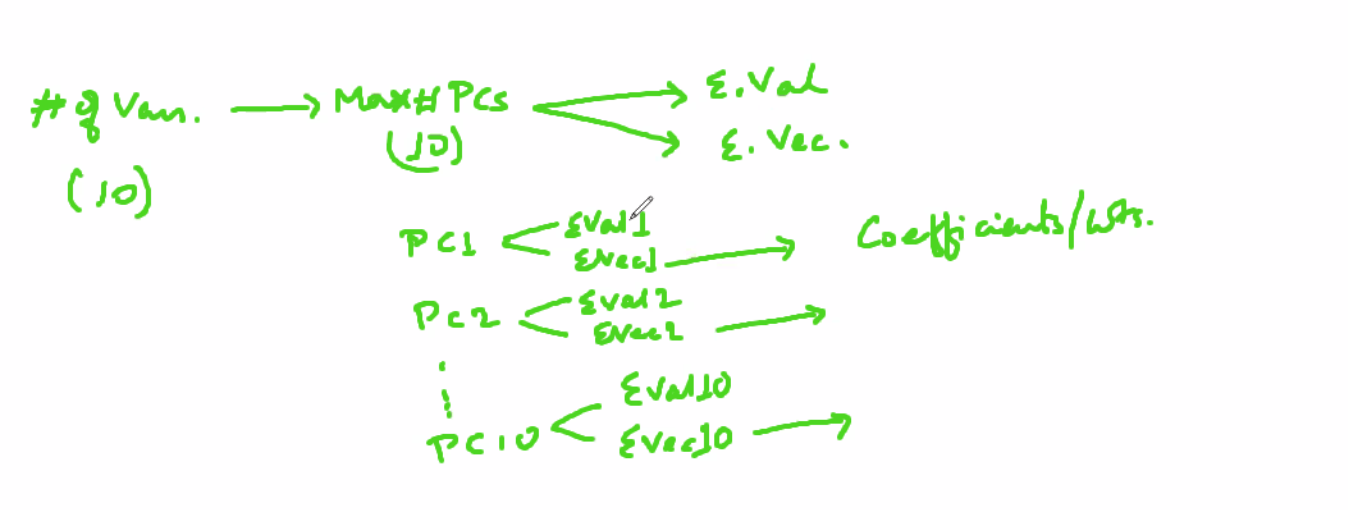 # of Van. → Max# PCs → E.Val
(10) (10) → E.Vec.
PC1 EVal1
EVec1 → Coefficients/Wts.
PC2 EVal2
EVec2 →
PC10 EVal10
EVec10 →